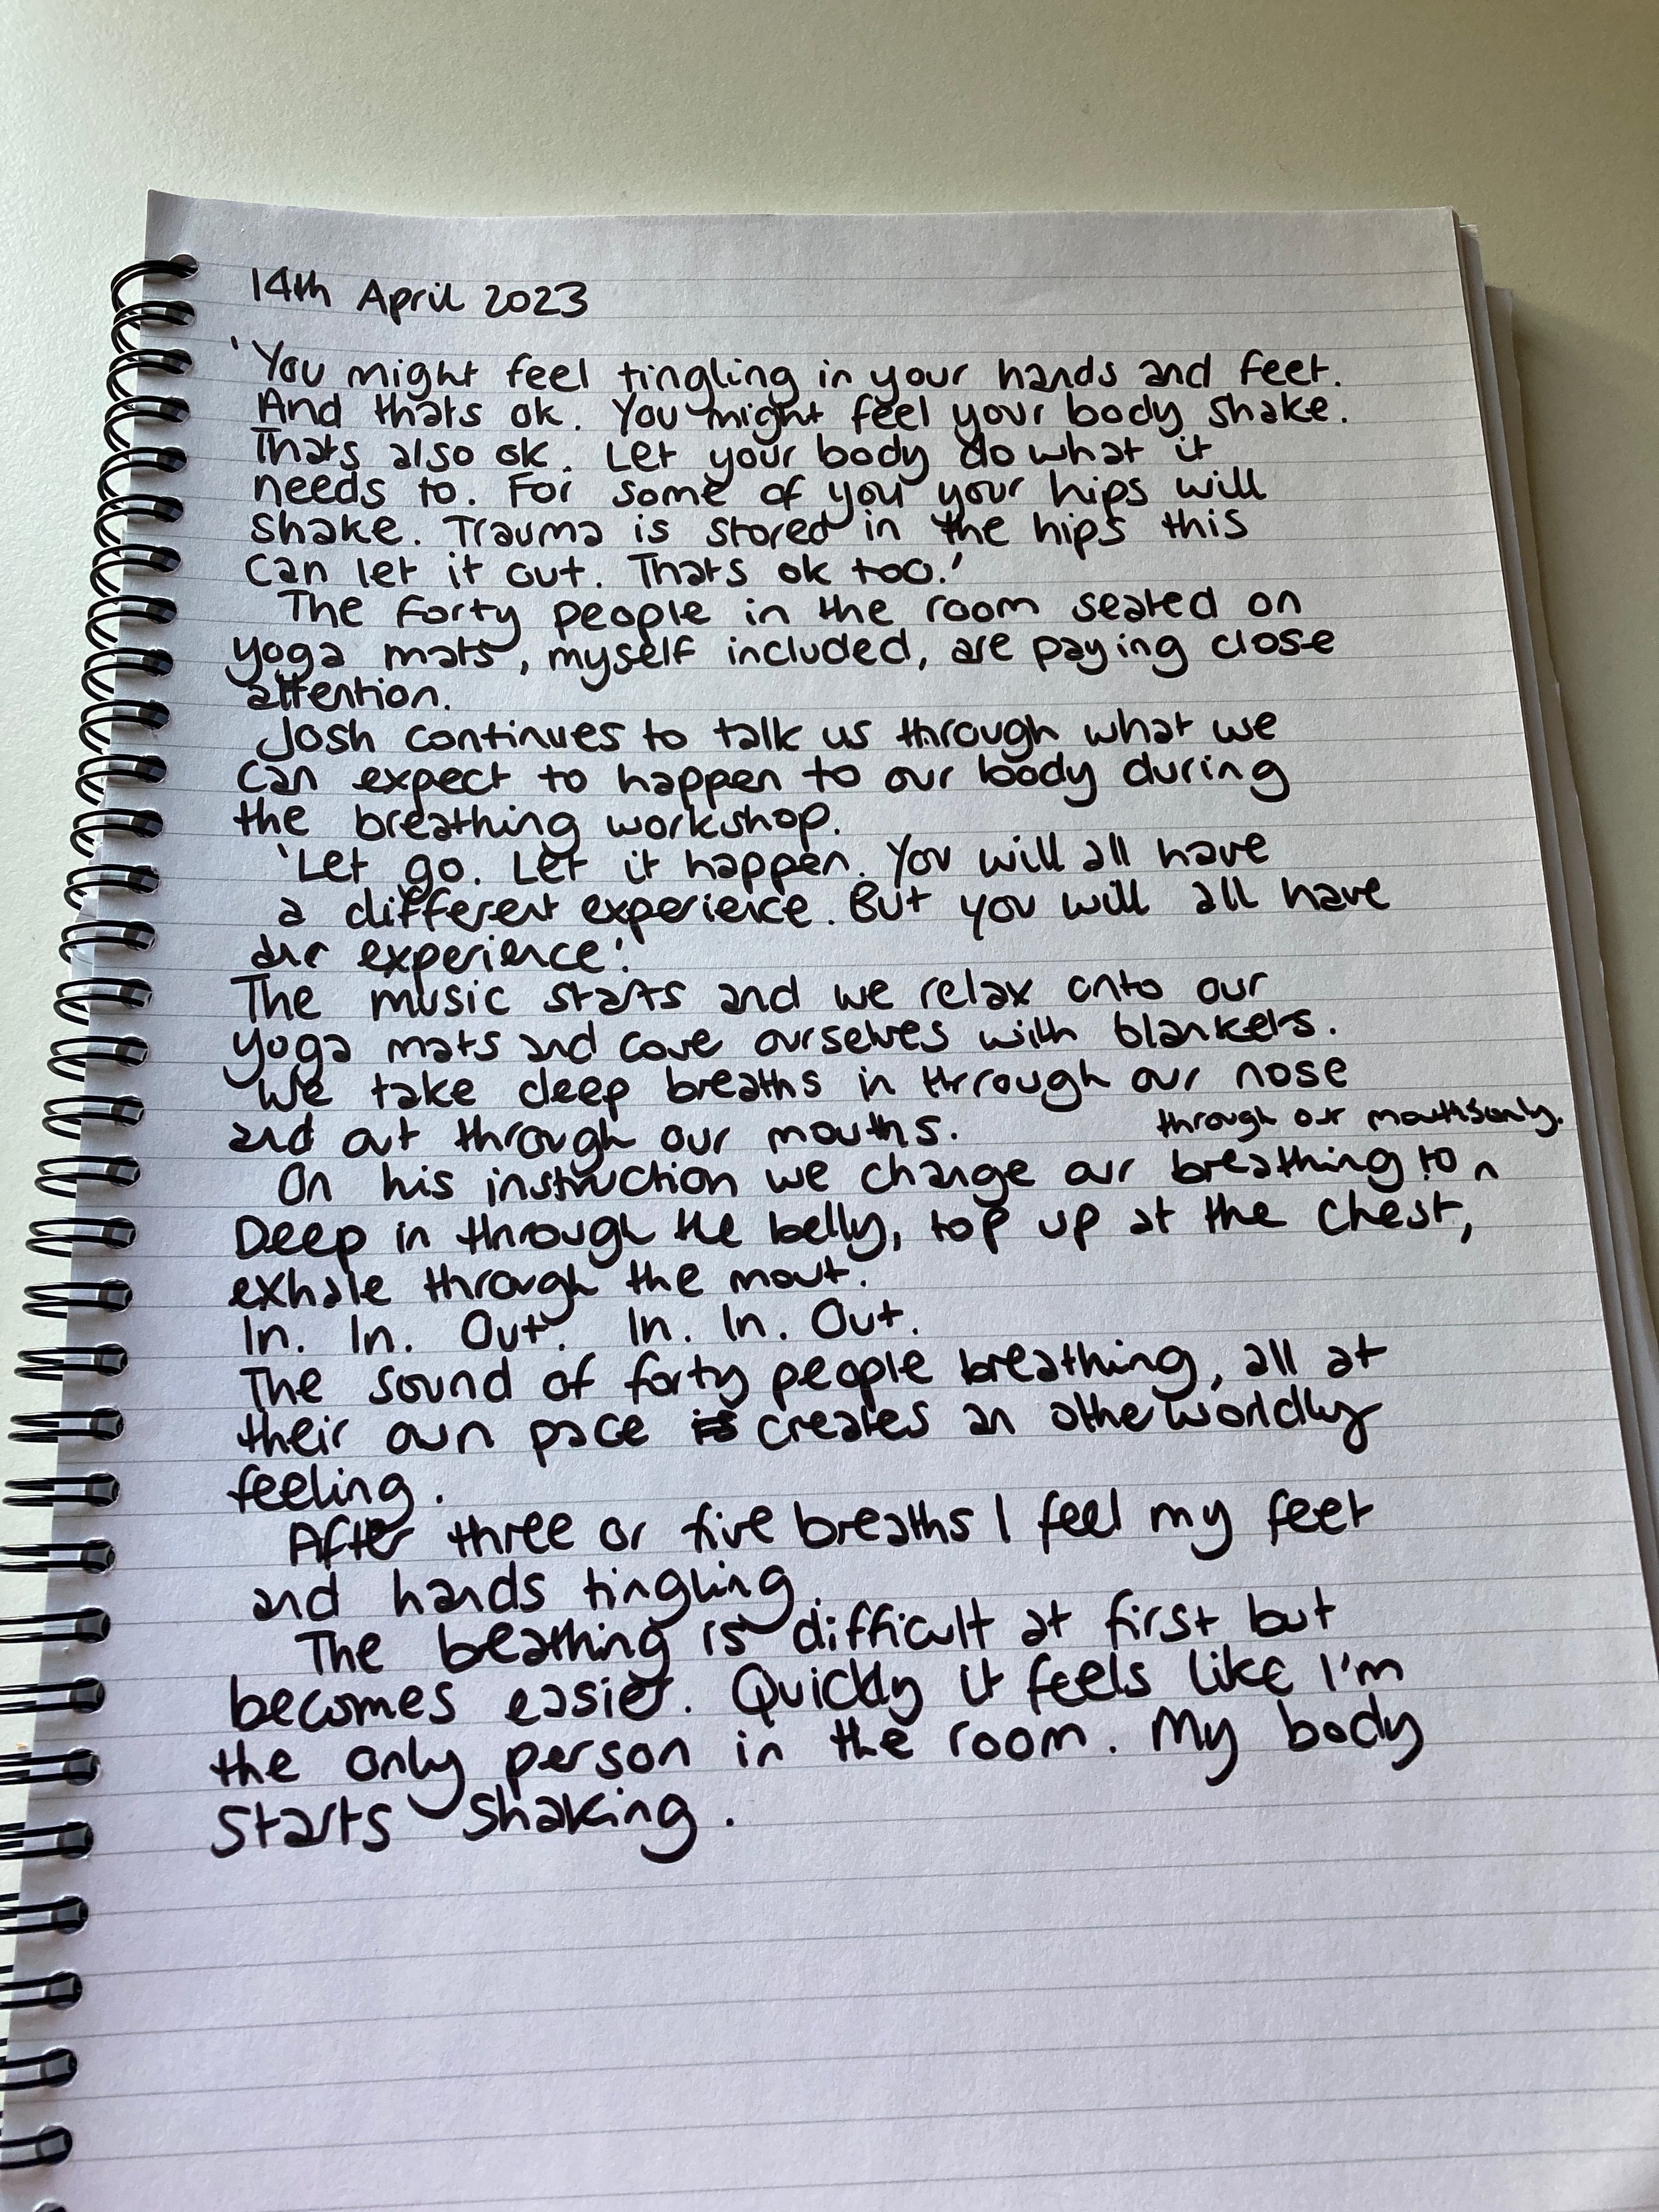 14th April 2023
'You might feel tingling in your hands and feet.
And thats ok. You might feel your body shake.
Thats also ok. Let your body do what it
needs to. For some of you your hips will
shake. Trauma is stored in the hips this
can let it out. Thats ok too.'
The forty people in the room seated on
yoga mats, myself included, are paying close
attention.
Josh continues to talk us through what we
can expect to happen to our body during
the breathing workshop.
'Let go. Let it happen. You will all have
a different experience. But you will all have
experience.'
The music starts and we relax onto our
yoga mats and cove ourselves with blankets.
We take deep breaths in through our nose
and out through our mouths.
through our mouths only.
On his instruction we change our breathing to
Deep in through the belly, top up at the chest,
exhale through the mout.
In. In. Out. In. In. Out.
The sound of forty people breathing, all at
their own pace is creates an otheworldly
feeling.
After three or five breaths I feel my feet
and hands tingling.
The beathing is difficult at first but
becomes easier. Quickly it feels like I'm
the only person in the room. My body
starts shaking.